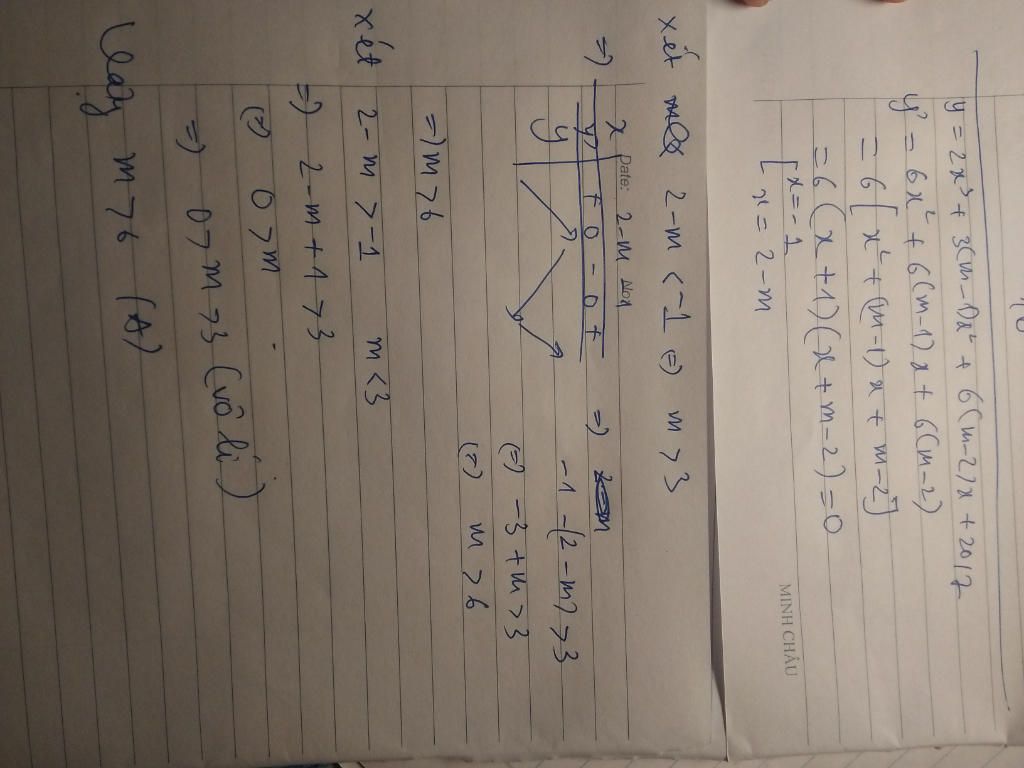 y = 2x³ + 3(m-1)x² + 6(m-2)x + 2017
y' = 6x² + 6(m-1)x + 6(m-2)
= 6[x² + (m-1)x + m-2]
= 6(x+1)(x+m-2) = 0
[ x = -1
x = 2-m
MINH CHÂU
xét 2-m < -1 (=) m > 3
Date: No
=) x 2-m -1
y' + 0 - 0 +
y
=)
-1 -(2-m) > 3
(=) -3 + m > 3
(=) m > 6
=) m > 6
xét 2-m > -1 m < 3
=) 2-m+1 > 3
(=) 0 > m
=) 0 > m > 3 (vô lí)
Vậy m > 6 (A)